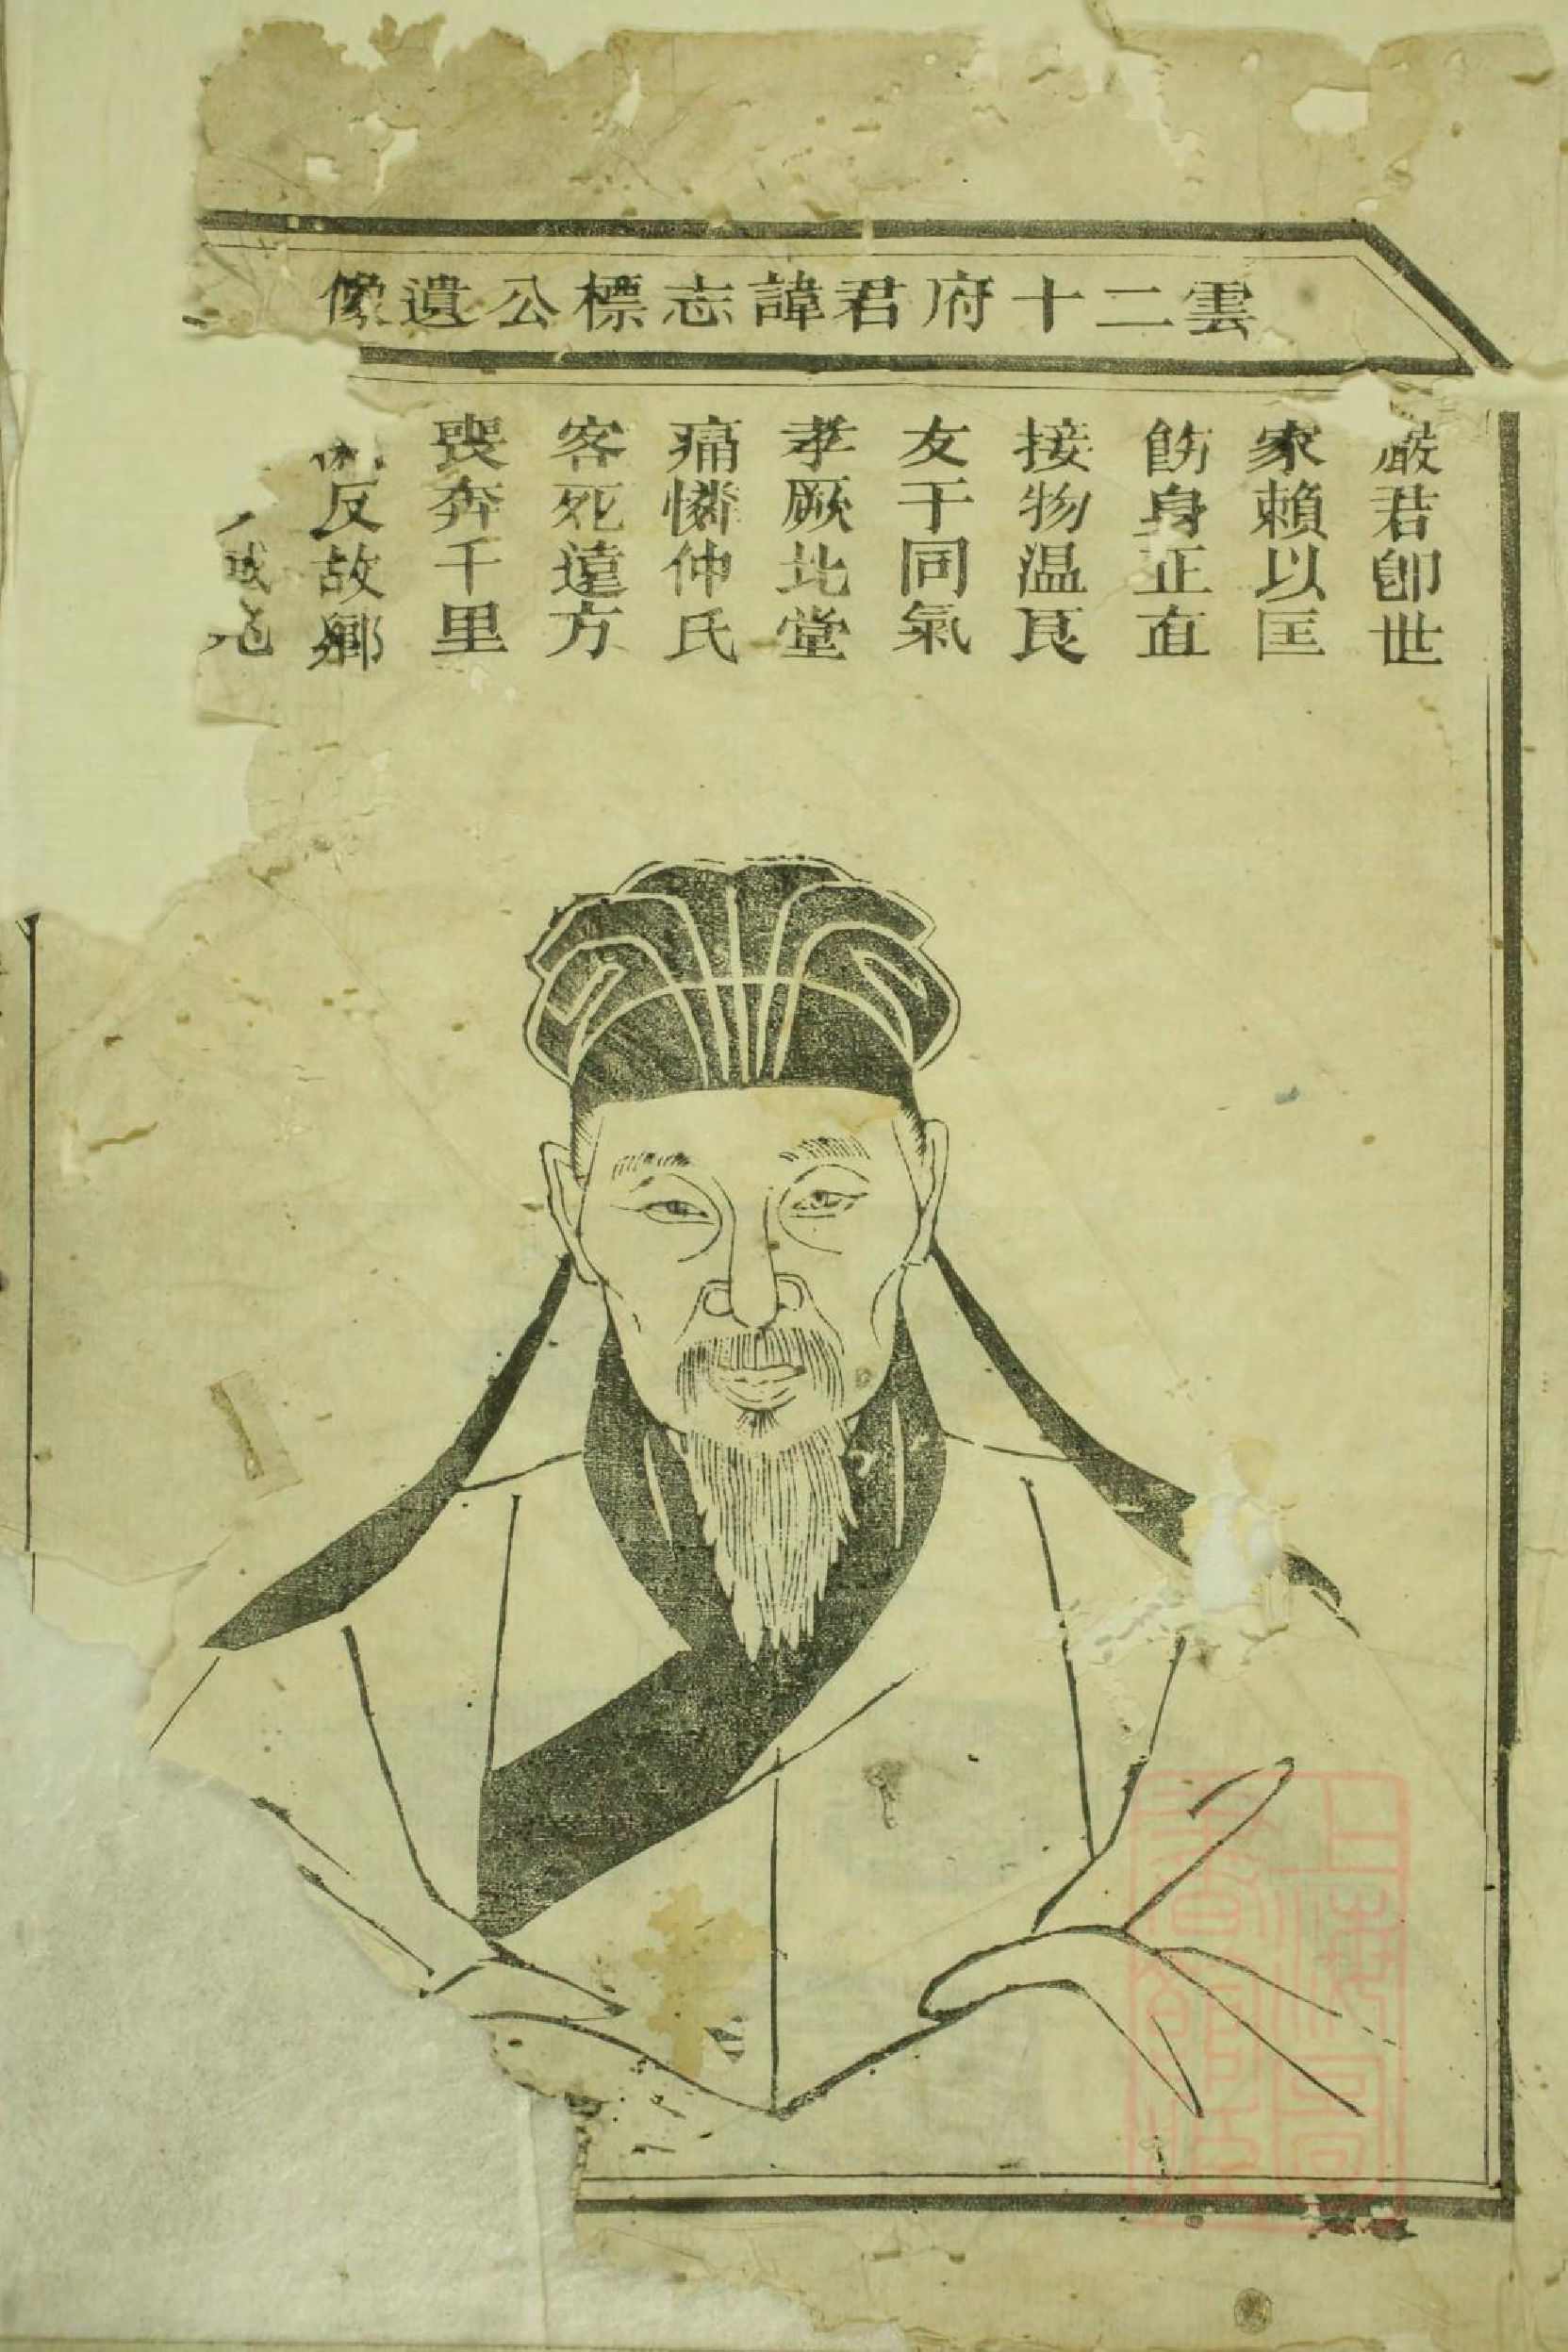 雲二十府君諱志標公遺像
嚴君卽世
家賴以匡
飭身正直
接物温良
友于同氣
孝厥北堂
痛憐仲氏
客死遠方
喪奔千里
反故鄉